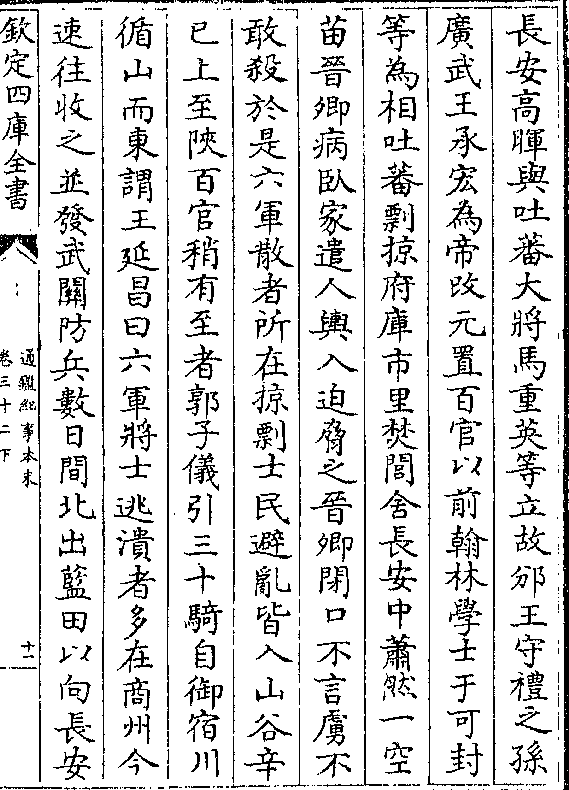 長安高暉與吐蕃大將馬重英等立故邠王守禮之孫
廣武王承宏為帝改元置百官以前翰林學士于可封
等為相吐蕃剽掠府庫市里焚閭舍長安中蕭然一空
苗晉卿病臥家遣人輿入迫脅之晉卿閉口不言虜不
敢殺於是六軍散者所在掠剽士民避亂皆入山谷辛
已上至陜百官稍有至者郭子儀引三十騎自御宿川
循山而東謂王延昌曰六軍將士逃潰者多在商州今
速往收之並發武關防兵數日間北出藍田以向長安
欽定四庫全書
通鑑紀事本末
卷三十二下
十一